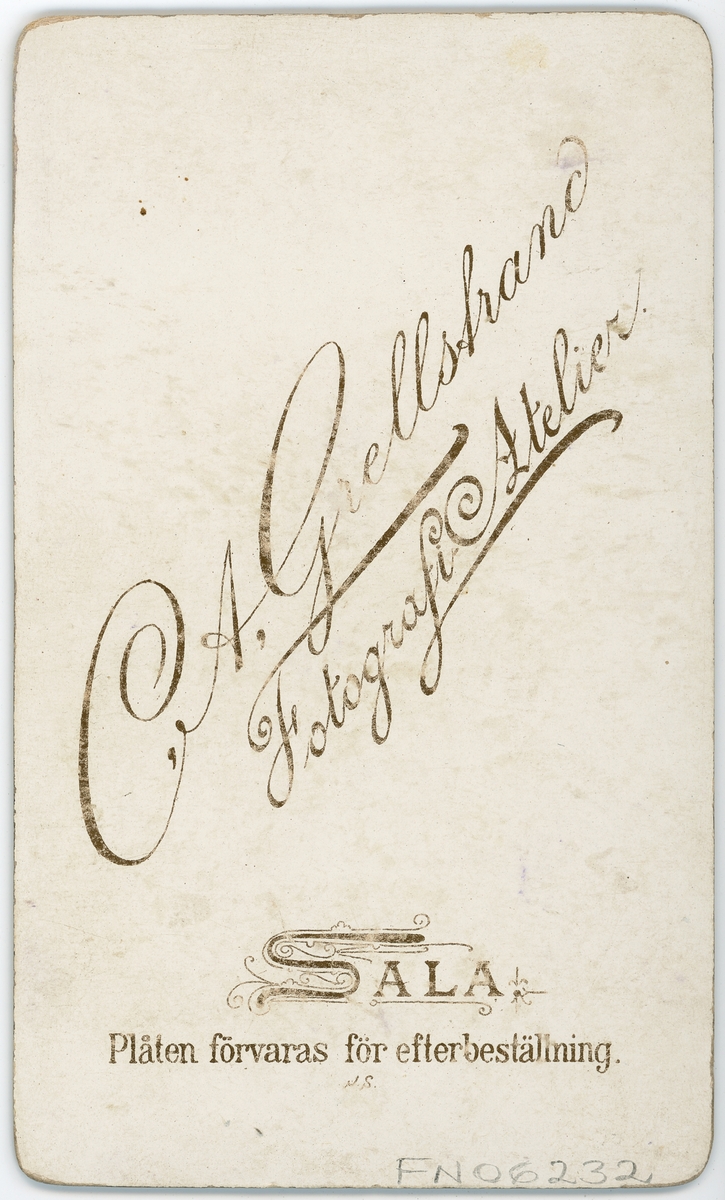 C. A. Grellstrand
Fotografi Atelier.
SALA
Plåten förvaras för efterbeställning.
N.S.
FN06232